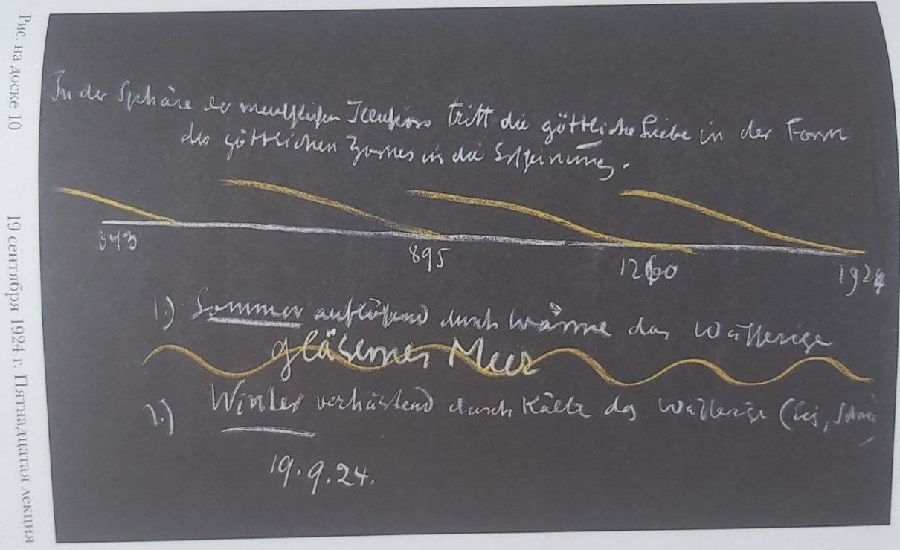 Рис. на доске 10
19 сентября 1924 г. Пятнадцатая лекция
In der Sphäre der menschlichen Illusion tritt die göttliche Liebe in der Form
des göttlichen Zornes in die Erscheinung.
895 1260 1924
1.) Sommer auflösend durch Wärme das Wässerige
gläsernes Meer
2.) Winter verhärtend durch Kälte das Wässerige (Eis,
19.9.24.